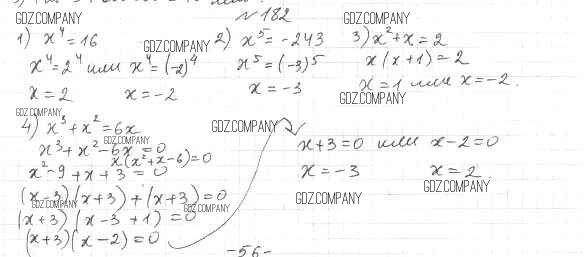 №182
1) x⁴=16
x⁴=2⁴ или x⁴=(-2)⁴
x=2 x=-2
2) x⁵=-243
x⁵=(-3)⁵
x=-3
3) x²+x=2
x(x+1)=2
x=1 или x=-2.
4) x³+x²=6x
x³+x²-6x=0
x(x²+x-6)=0
x²-9+x+3=0
(x-3)(x+3)+(x+3)=0
(x+3)(x-3+1)=0
(x+3)(x-2)=0
x+3=0 или x-2=0
x=-3 x=2
-56-
GDZ.COMPANY
GDZ.COMPANY
GDZ.COMPANY
GDZ.COMPANY
GDZ.COMPANY
GDZ.COMPANY
GDZ.COMPANY
GDZ.COMPANY
GDZ.COMPANY
GDZ.COMPANY
GDZ.COMPANY